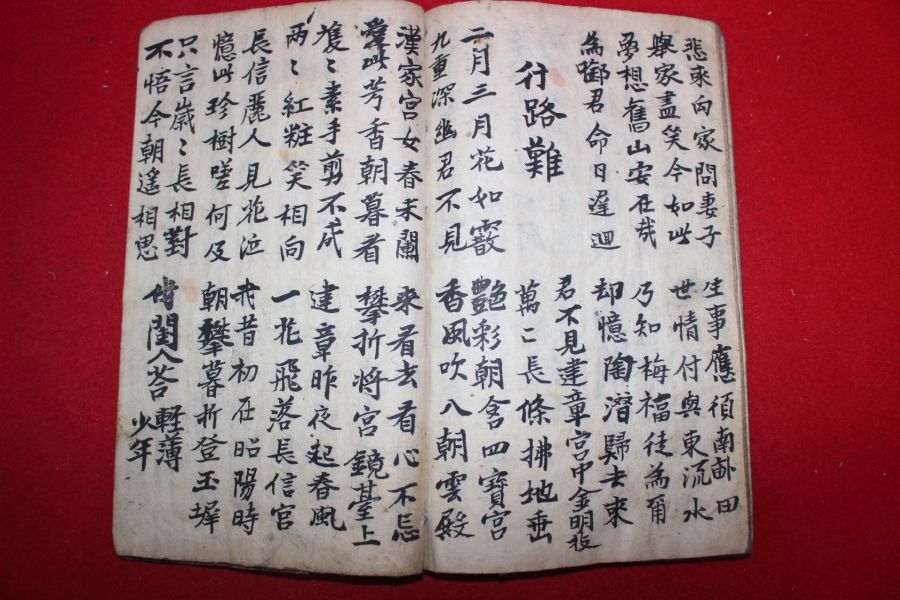 悲來向家問妻子 生事應須南畝田
擧家盡笑今如此 世情付與東流水
夢想舊山安在哉 乃知梅福徒為爾
為啣君命日遲迴 却憶陶潛歸去來
行路難
君不見建章宮中金明枝
萬〻長條拂地垂
二月三月花如霰 艶彩朝含四寶宮
九重深幽君不見 香風吹入朝雲殿
漢家宮女春未闌 來看去看心不忘
愛此芳香朝暮看 攀折將宮鏡臺上
雙〻素手剪不成 建章昨夜起春風
兩〻紅粧笑相向 一花飛落長信宮
長信麗人見花泣 我昔初在昭陽時
憶此珍樹嗟何及 朝攀暮折登玉墀
只言歲〻長相對
不悟今朝遙相思
閨人荅軽薄少年